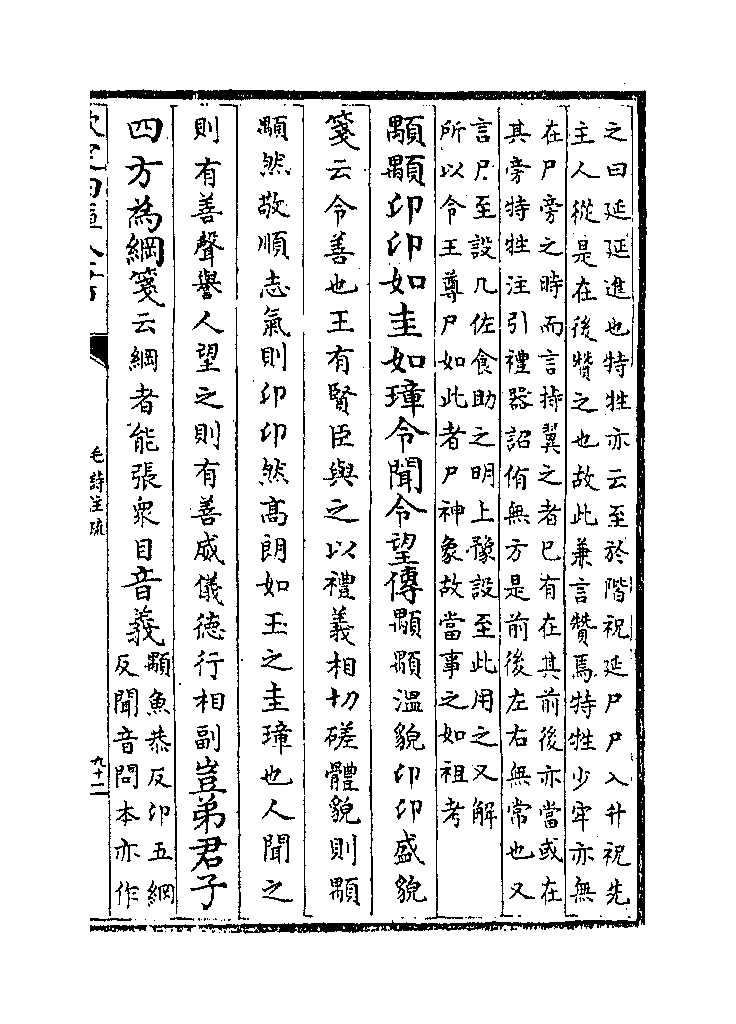 之曰延延進也特牲亦云至於階祝延尸尸入升祝先
主人從是在後贊之也故此兼言贊焉特牲少牢亦無
在尸旁之時而言持翼之者已有在其前後亦當或在
其旁特牲注引禮器詔侑無方是前後左右無常也又
言尸至設几佐食助之明上豫設至此用之又解
所以令王尊尸如此者尸神象故當事之如祖考
顒顒卬卬如圭如璋令聞令望傳顒顒溫貌卬卬盛貌
箋云令善也王有賢臣與之以禮義相切磋體貌則顒
顒然敬順志氣則卬卬然高朗如玉之圭璋也人聞之
則有善聲譽人望之則有善威儀德行相副豈弟君子
四方為綱箋云綱者能張衆目音義
顒魚恭反卬五綱
反聞音問本亦作
毛詩注疏
九十二